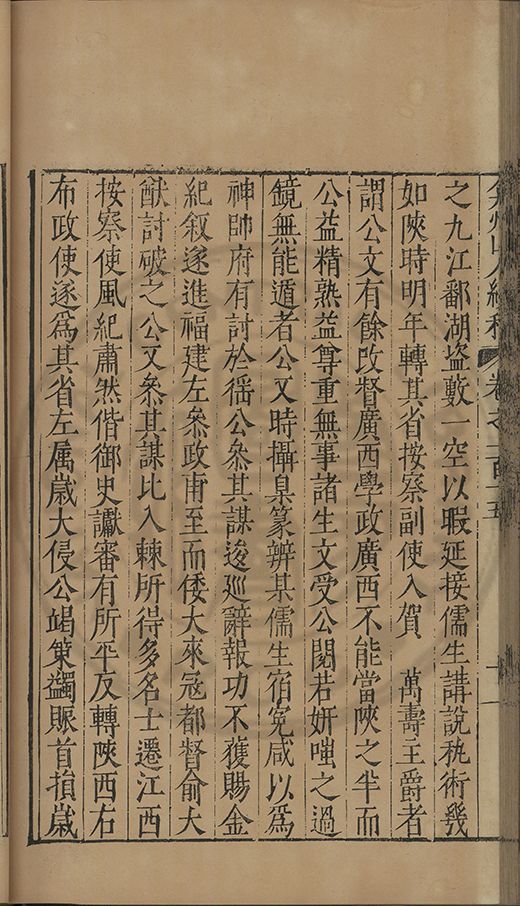 弇州山人續稿 卷之一百十五 十一
之九江鄱湖盜藪一空以暇延接儒生講說秇術幾
如陜時明年轉其省按察副使入賀 萬壽主爵者
謂公文有餘改督廣西學政廣西不能當陜之半而
公益精熟益尊重無事諸生文受公閱若妍媸之過
鏡無能遁者公又時攝臬篆辨某儒生宿寃咸以爲
神帥府有討於徭公叅其謀逡廵辭報功不獲賜金
紀叙遂進福建左叅政甫至而倭大來寇都督俞大
猷討破之公又叅其謀比入棘所得多名士遷江西
按察使風紀肅然偕御史讞審有所平反轉陜西右
布政使遂爲其省左属歲大侵公竭策蠲賑首損歲